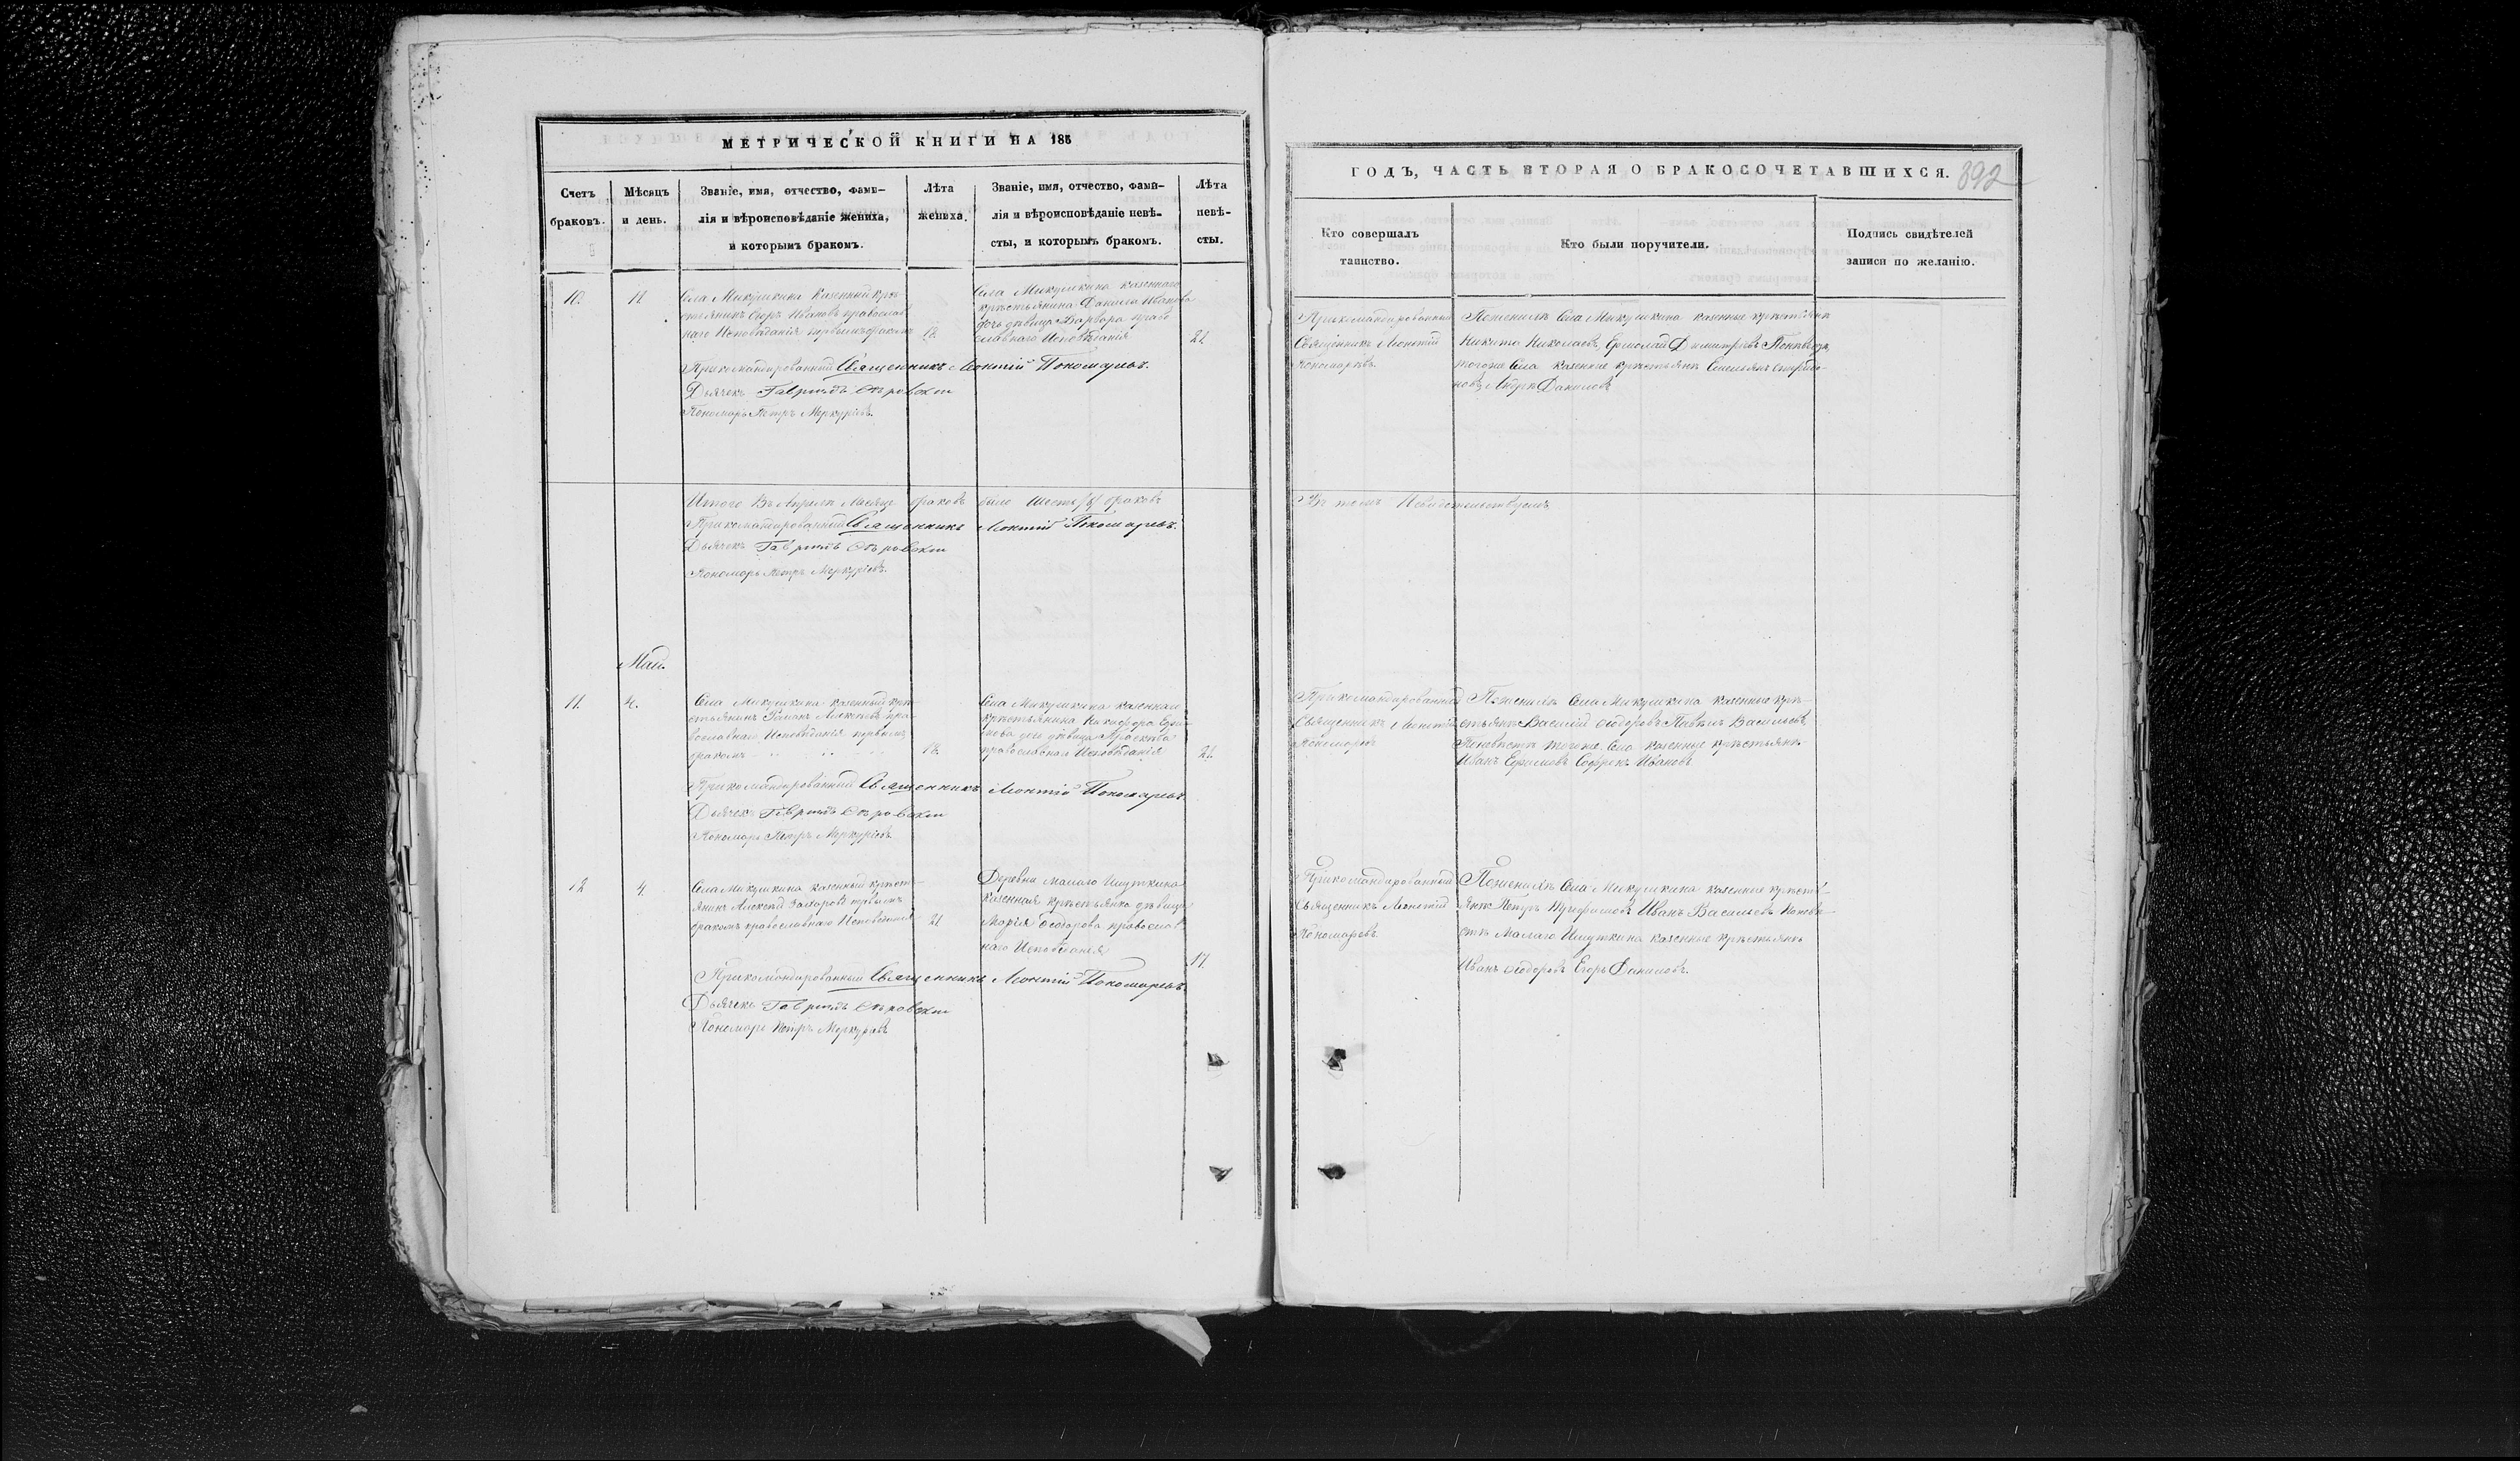 МЕТРИЧЕСКОЙ КНИГИ НА 185
Счетъ браковъ.
Мѣсяцъ и день.
Званіе, имя, отчество, фами-
лія и вѣроисповѣданіе жениха,
и которымъ бракомъ.
Лѣта
жениха.
Званіе, имя, отчество, фами-
лія и вѣроисповѣданіе невѣ-
сты, и которымъ бракомъ.
Лѣта
невѣ-
сты.
10.
11.
Села Микушкина казенный кре-
стьянинъ Егоръ Ивановъ православ
наго Исповѣданія первымъ бракомъ
18
Села Микушкина казеннаго
крестьянина Данила Иванова
дочь дѣвица Варвара право
славнаго Исповѣданія
21
Прикомандированный Священникъ Леонтій Пономаревъ.
Дьячекъ Гавріилъ
Пономарь Петръ Меркурьевъ.
Итого Въ Апрѣлѣ Месяце браковъ было шесть браковъ
Прикомандированный Священникъ Леонтій Пономаревъ.
Дьячекъ Гавріилъ
Пономарь Петръ Меркурьевъ.
Май.
11.
4.
Села Микушкина казенный кре
стьянинъ Романъ Алексѣевъ пра-
вославнаго Исповѣданія первымъ
бракомъ
18
Села Микушкина казеннаго
крестьянина Никифора
дочь дѣвица
православнаго Исповѣданія
21.
Прикомандированный Священникъ Леонтій Пономаревъ.
Дьячекъ Гавріилъ
Пономарь Петръ Меркурьевъ
12
4.
Села Микушкина казенный крест-
янинъ Алексѣй Захаровъ
бракомъ православнаго Исповѣданія
21
Деревни Малаго Ишуткина
казенная крестьянка дѣвица
Марія Ѳеодорова православ
наго Исповѣданія
17.
Прикомандированный Священникъ Леонтій Пономаревъ.
Дьячекъ Гавріилъ
Пономарь Петръ Меркурьевъ
ГОДЪ, ЧАСТЬ ВТОРАЯ О БРАКОСОЧЕТАВШИХСЯ.
392
Кто совершалъ
таинство.
Кто были поручители.
Подпись свидѣтелей
записи по желанію.
Прикомандированный
Священникъ Леонтій
Пономаревъ.
По женихѣ Села Микушкина казенные
Никита Николаевъ, Ермолай Димитріевъ
тогоже Села казенные крестьяне
Андрей Даниловъ
Въ томъ И свидѣтельствуемъ
Прикомандированный
Священникъ Леонтій
Пономаревъ
По женихѣ Села Микушкина казенные кре-
стьяне Василій Ѳеодоровъ Павелъ Васильевъ,
По невѣсте тогоже Села казенные крестьяне
Иванъ Ефимовъ Софронъ Ивановъ
Прикомандированный
Священникъ Леонтій
Пономаревъ.
По женихѣ Села Микушкина казенные крестьяне
Петръ Иванъ Васильевъ По невѣ-
сте Малаго Ишуткина казенные крестьяне
Иванъ Ѳеодоровъ Егоръ